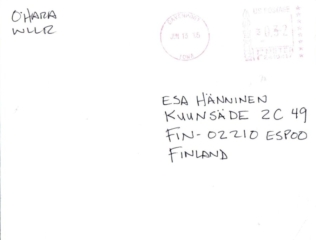 O'HARA
WLLR
ESA HÄNNINEN
KUUNSÄDE 2C 49
FIN-02210 ESPOO
FINLAND